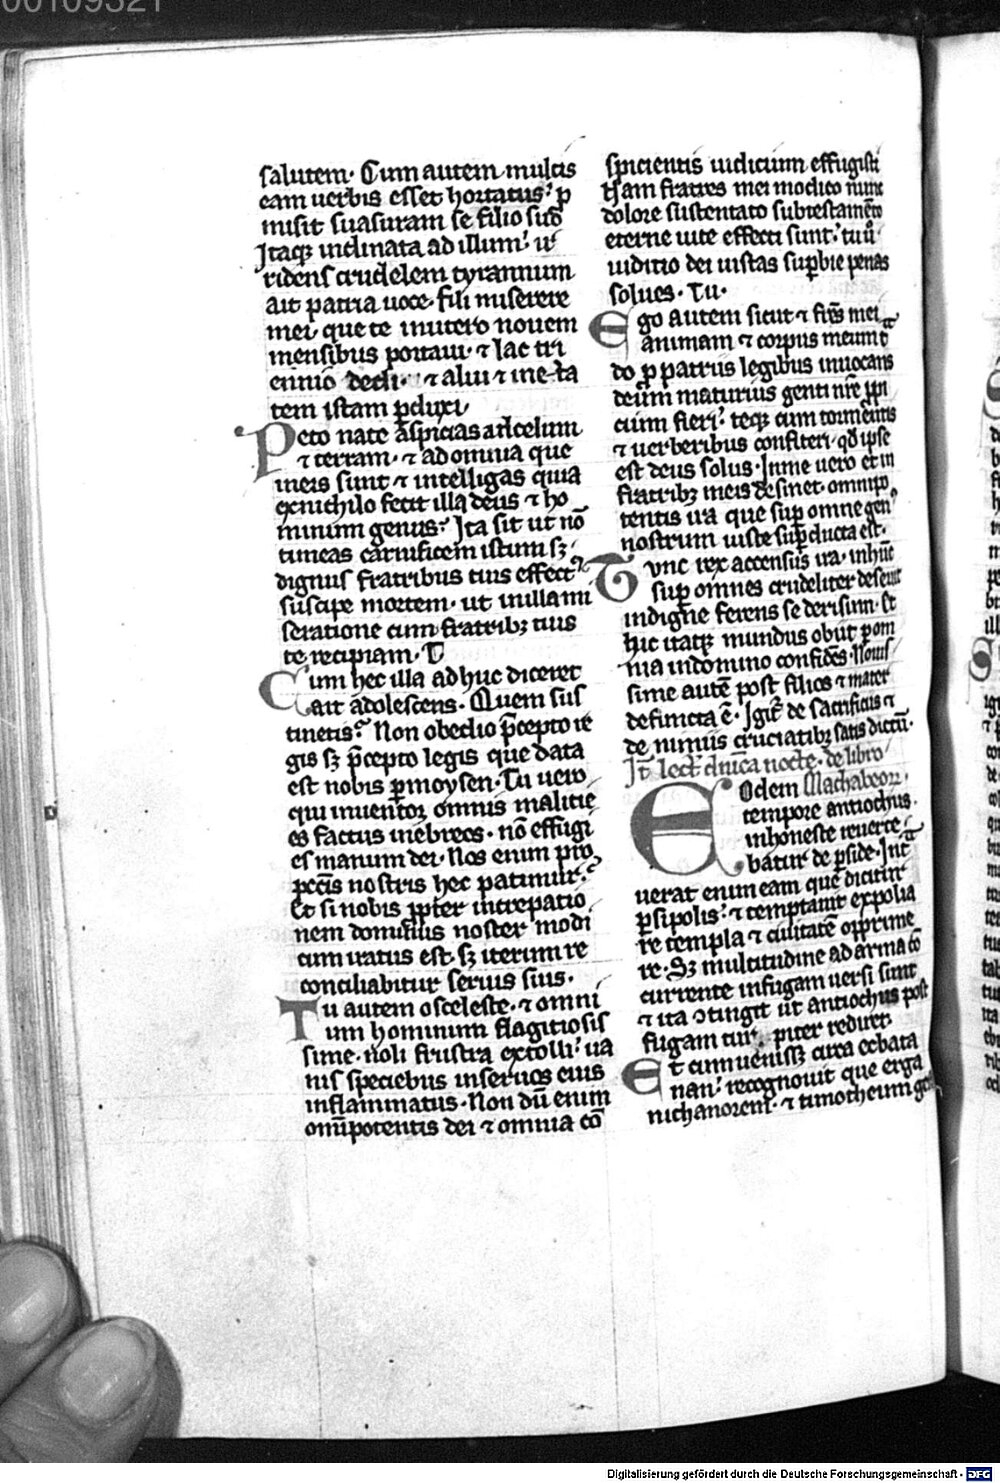 00109321
salutem. Cum autem multis
eam uerbis esset hortatus: p
misit suasuram se filio suo
Itaqꝫ inclinata ad illum: ir
ridens crudelem tyrannum
ait patria uoce. fili miserere
mei. que te in utero nouem
mensibus portaui. ⁊ lac tri
ennio dedi. ⁊ alui ⁊ in eta
tem istam ꝑduxi
Peto nate aspicias ad celum
⁊ terram. ⁊ ad omnia que
in eis sunt ⁊ intelligas quia
ex nichilo fecit illa deus ⁊ ho
minum genus: Ita fit ut nō
timeas carnificem istum sꝫ
dignus fratribus tuis effectꝰ
suscipe mortem. ut in illa mi
seratione cum fratribꝫ tuis
te recipiam. T
Cum hec illa adhuc diceret
ait adolescens. Quem sus
tinetis? Non obedio p̄cepto re
gis sꝫ p̄cepto legis que data
est nobis ꝑ moysen. Tu uero
qui inuentor omnis malicie
es factus in ebreos. nō effugi
es manum dei. Nos enim pro
pccīs nostris hec patimur.
Et si nobis ꝓpter increpatio
nem dominus noster modi
cum iratus est. sꝫ iterum re
conciliabitur seruis suis.
Tu autem o sceleste. ⁊ omni
um hominum flagitiosis
sime. noli frustra extolli ua
nis speciebus in seruos eius
inflammatus. Non dū enim
omīpotentis dei ⁊ omnia cō
spicientis iudicium effugisti
Nam fratres mei modico nunc
dolore sustentato sub testamēto
eterne uite effecti sunt. tu ū
iudicio dei iustas suꝑbie penas
solues. Tu.
Ego autem sicut ⁊ frēs mei
animam ⁊ corpus meum t̄
do ꝓ patriis legibus inuocans
deum maturius genti nr̄e ꝓpi
cium fieri: teqꝫ cum tormentis
⁊ uerberibus confiteri qđ ipse
est deus solus. In me uero et in
fratribꝫ meis desinet. omnipo
tentis ira que suꝑ omne genꝰ
nostrum iuste suꝑducta est.
Tunc rex accensus ira. in hūc
suꝑ omnes crudelius deseuit
indigne ferens se derisum. Et
hic itaqꝫ mundus obiit ꝑ om
nia in domino confidēs. Nouis
sime autē post filios ⁊ mater
defuncta ē. Igit̄ de sacrificiis ⁊
de nimiis cruciatibꝫ satis dictū.
It̄ lect̄ dn̄ica nocte. de libro
Eodem Machabeoꝝ.
tempore antiochus
inhoneste reuerte
batur de ꝑside. Int̄
uerat enim eam que dicitur
ꝑsipolis: ⁊ temptauit expolia
re templa ⁊ ciuitatē opprime
re. Sꝫ multitudine ad arma cō
currente in fugam uersi sunt
⁊ ita ↄtingit ut antiochus post
fugam turpiter rediret.
Et cum uenissꝫ circa ecbata
nan: recognouit que erga
nichanorem. ⁊ timotheum ge
Digitalisierung gefördert durch die Deutsche Forschungsgemeinschaft - DFG